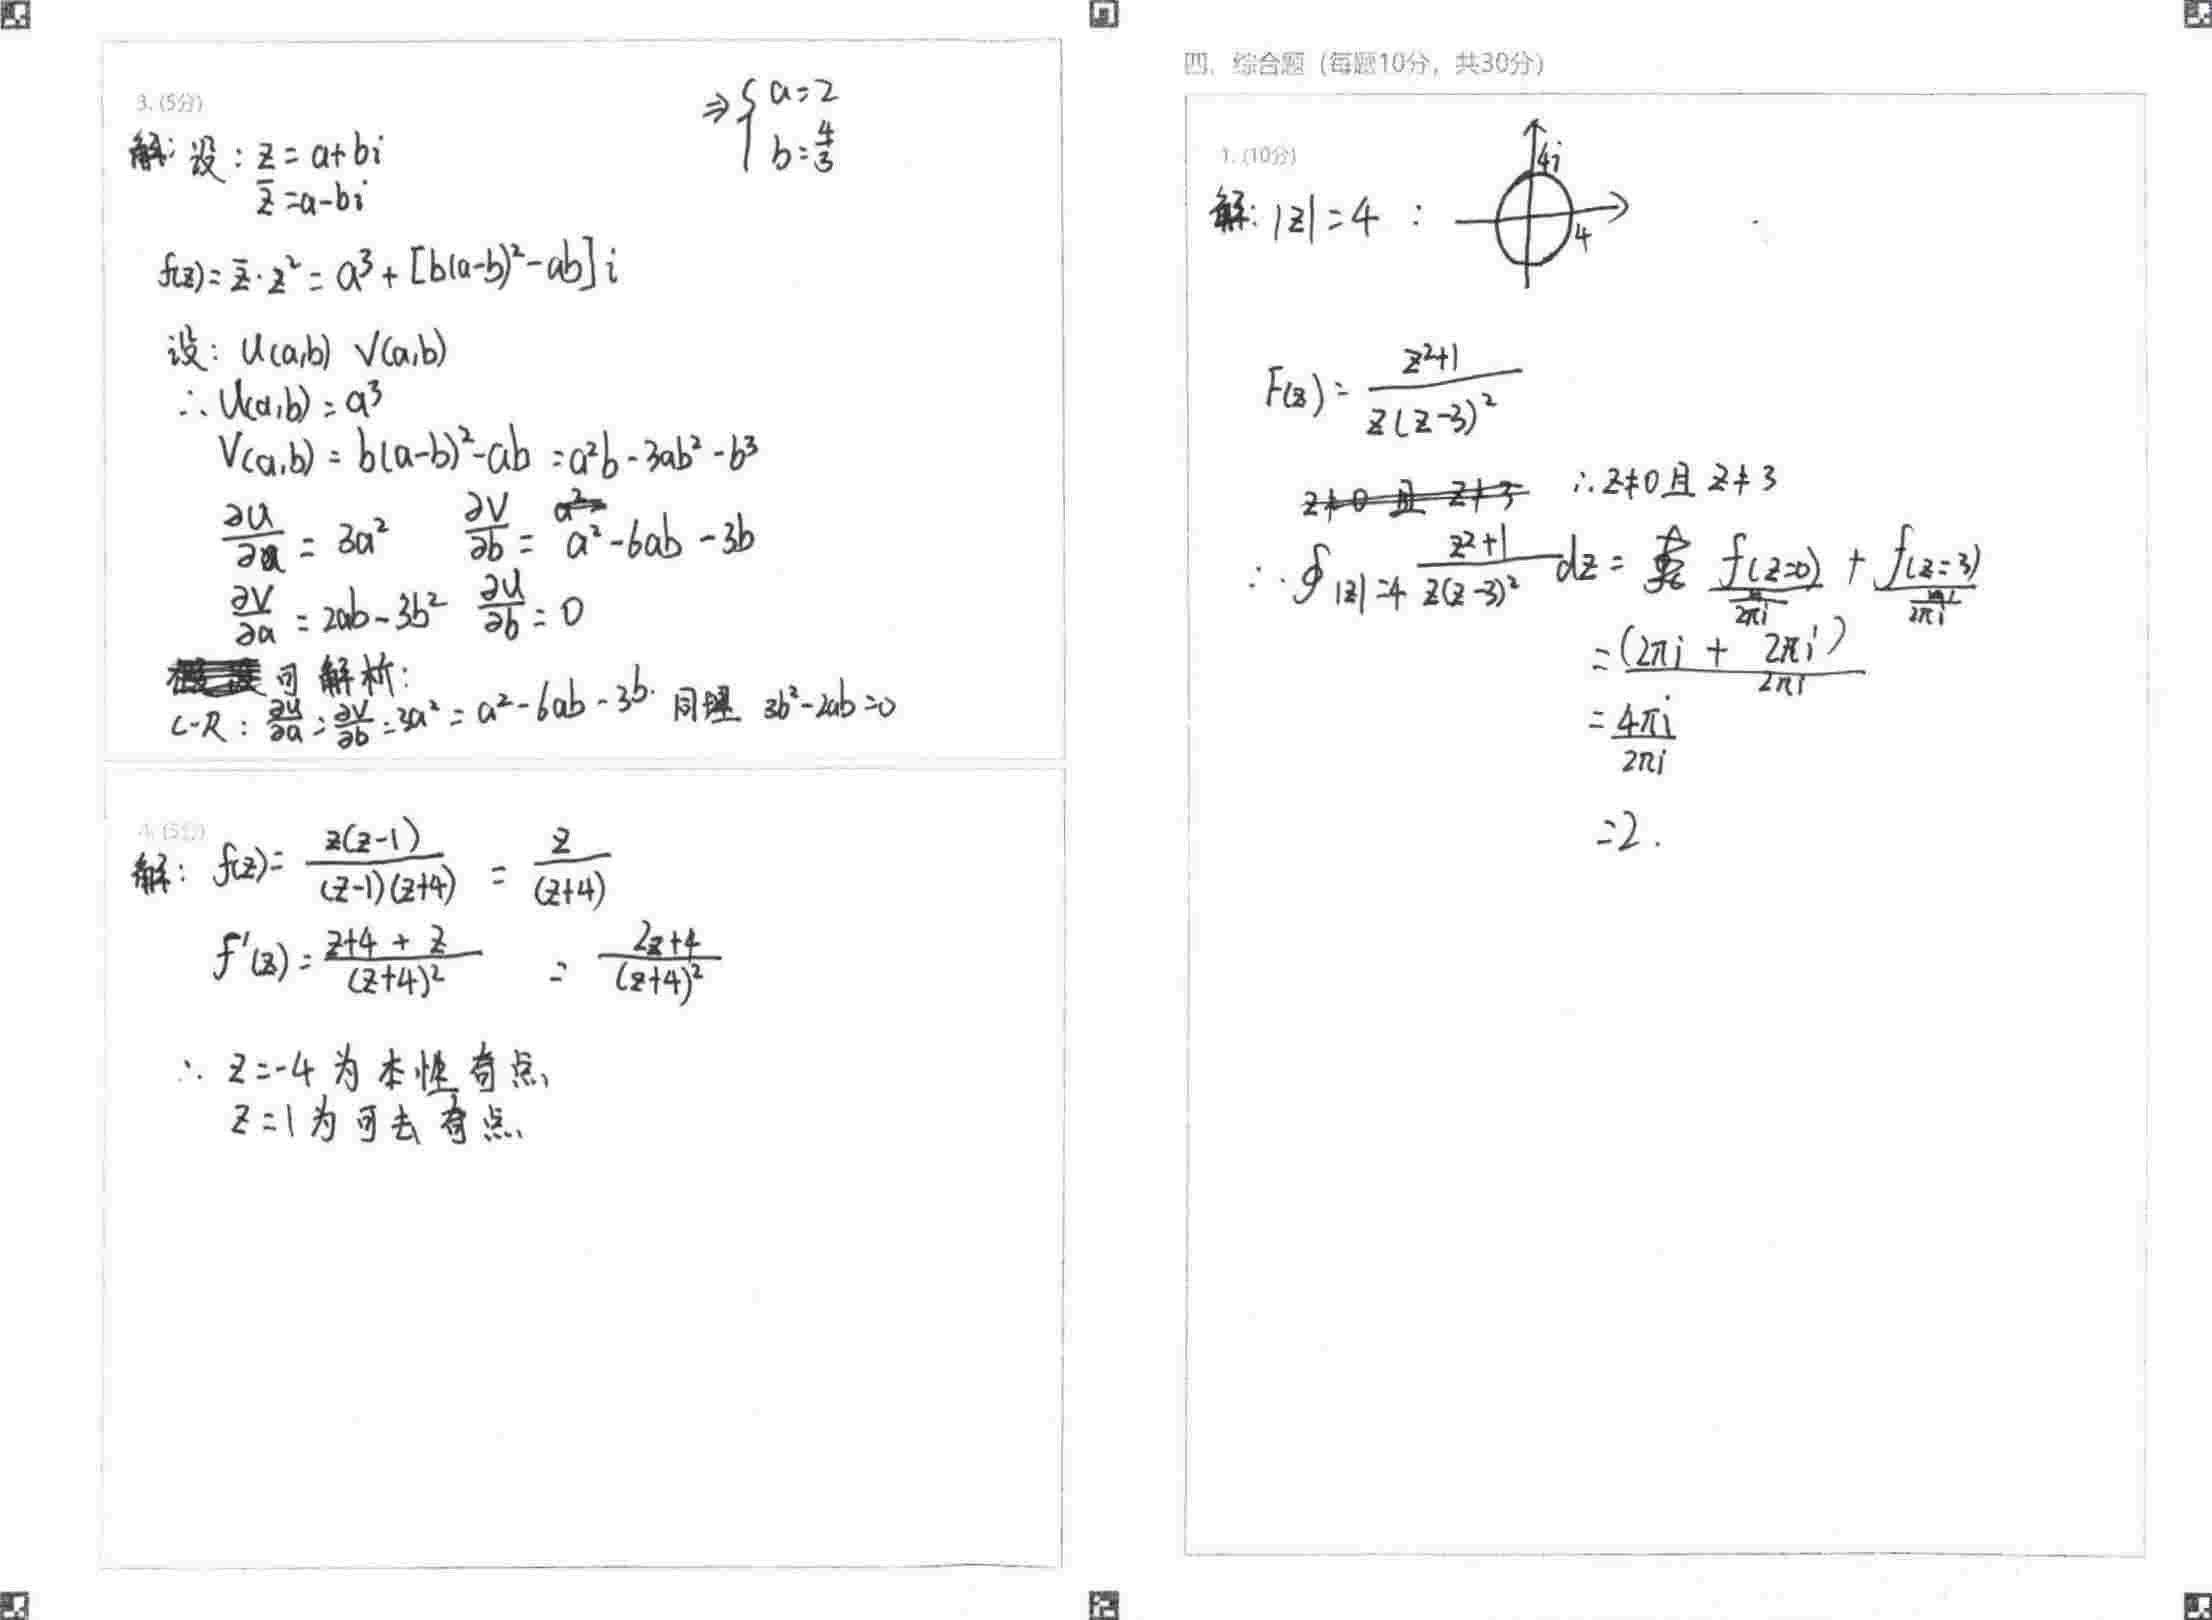 3. (5分)
解: 设: z = a+bi
z̄ = a-bi
f(z) = z̄·z² = a³ + [b(a-b)²-ab]i
设: U(a,b) V(a,b)
∴ U(a,b) = a³
V(a,b) = b(a-b)²-ab = a²b-3ab²-b³
∂U/∂a = 3a² ∂V/∂b = a²-6ab-3b
∂V/∂a = 2ab-3b² ∂U/∂b = 0
可解析:
C-R: ∂U/∂a = ∂V/∂b = 3a² = a²-6ab-3b. 同理 3b²-2ab=0
⇒ { a=2
b=4/3
4. (5分)
解: f(z) = z(z-1)/(z-1)(z+4) = z/(z+4)
f'(z) = z+4+z/(z+4)² = 2z+4/(z+4)²
∴ z=-4 为本性奇点,
z=1 为可去奇点.
四、综合题 (每题10分, 共30分)
1. (10分)
解: |z|=4 :
4i
4
F(z) = z²+1/z(z-3)²
z≠0 且 z≠3 ∴ z≠0 且 z≠3
∴ ∮|z|=4 z²+1/z(z-3)² dz = f(z=0)/2πi + f(z=3)/2πi
= (2πi + 2πi)/2πi
= 4πi/2πi
= 2.